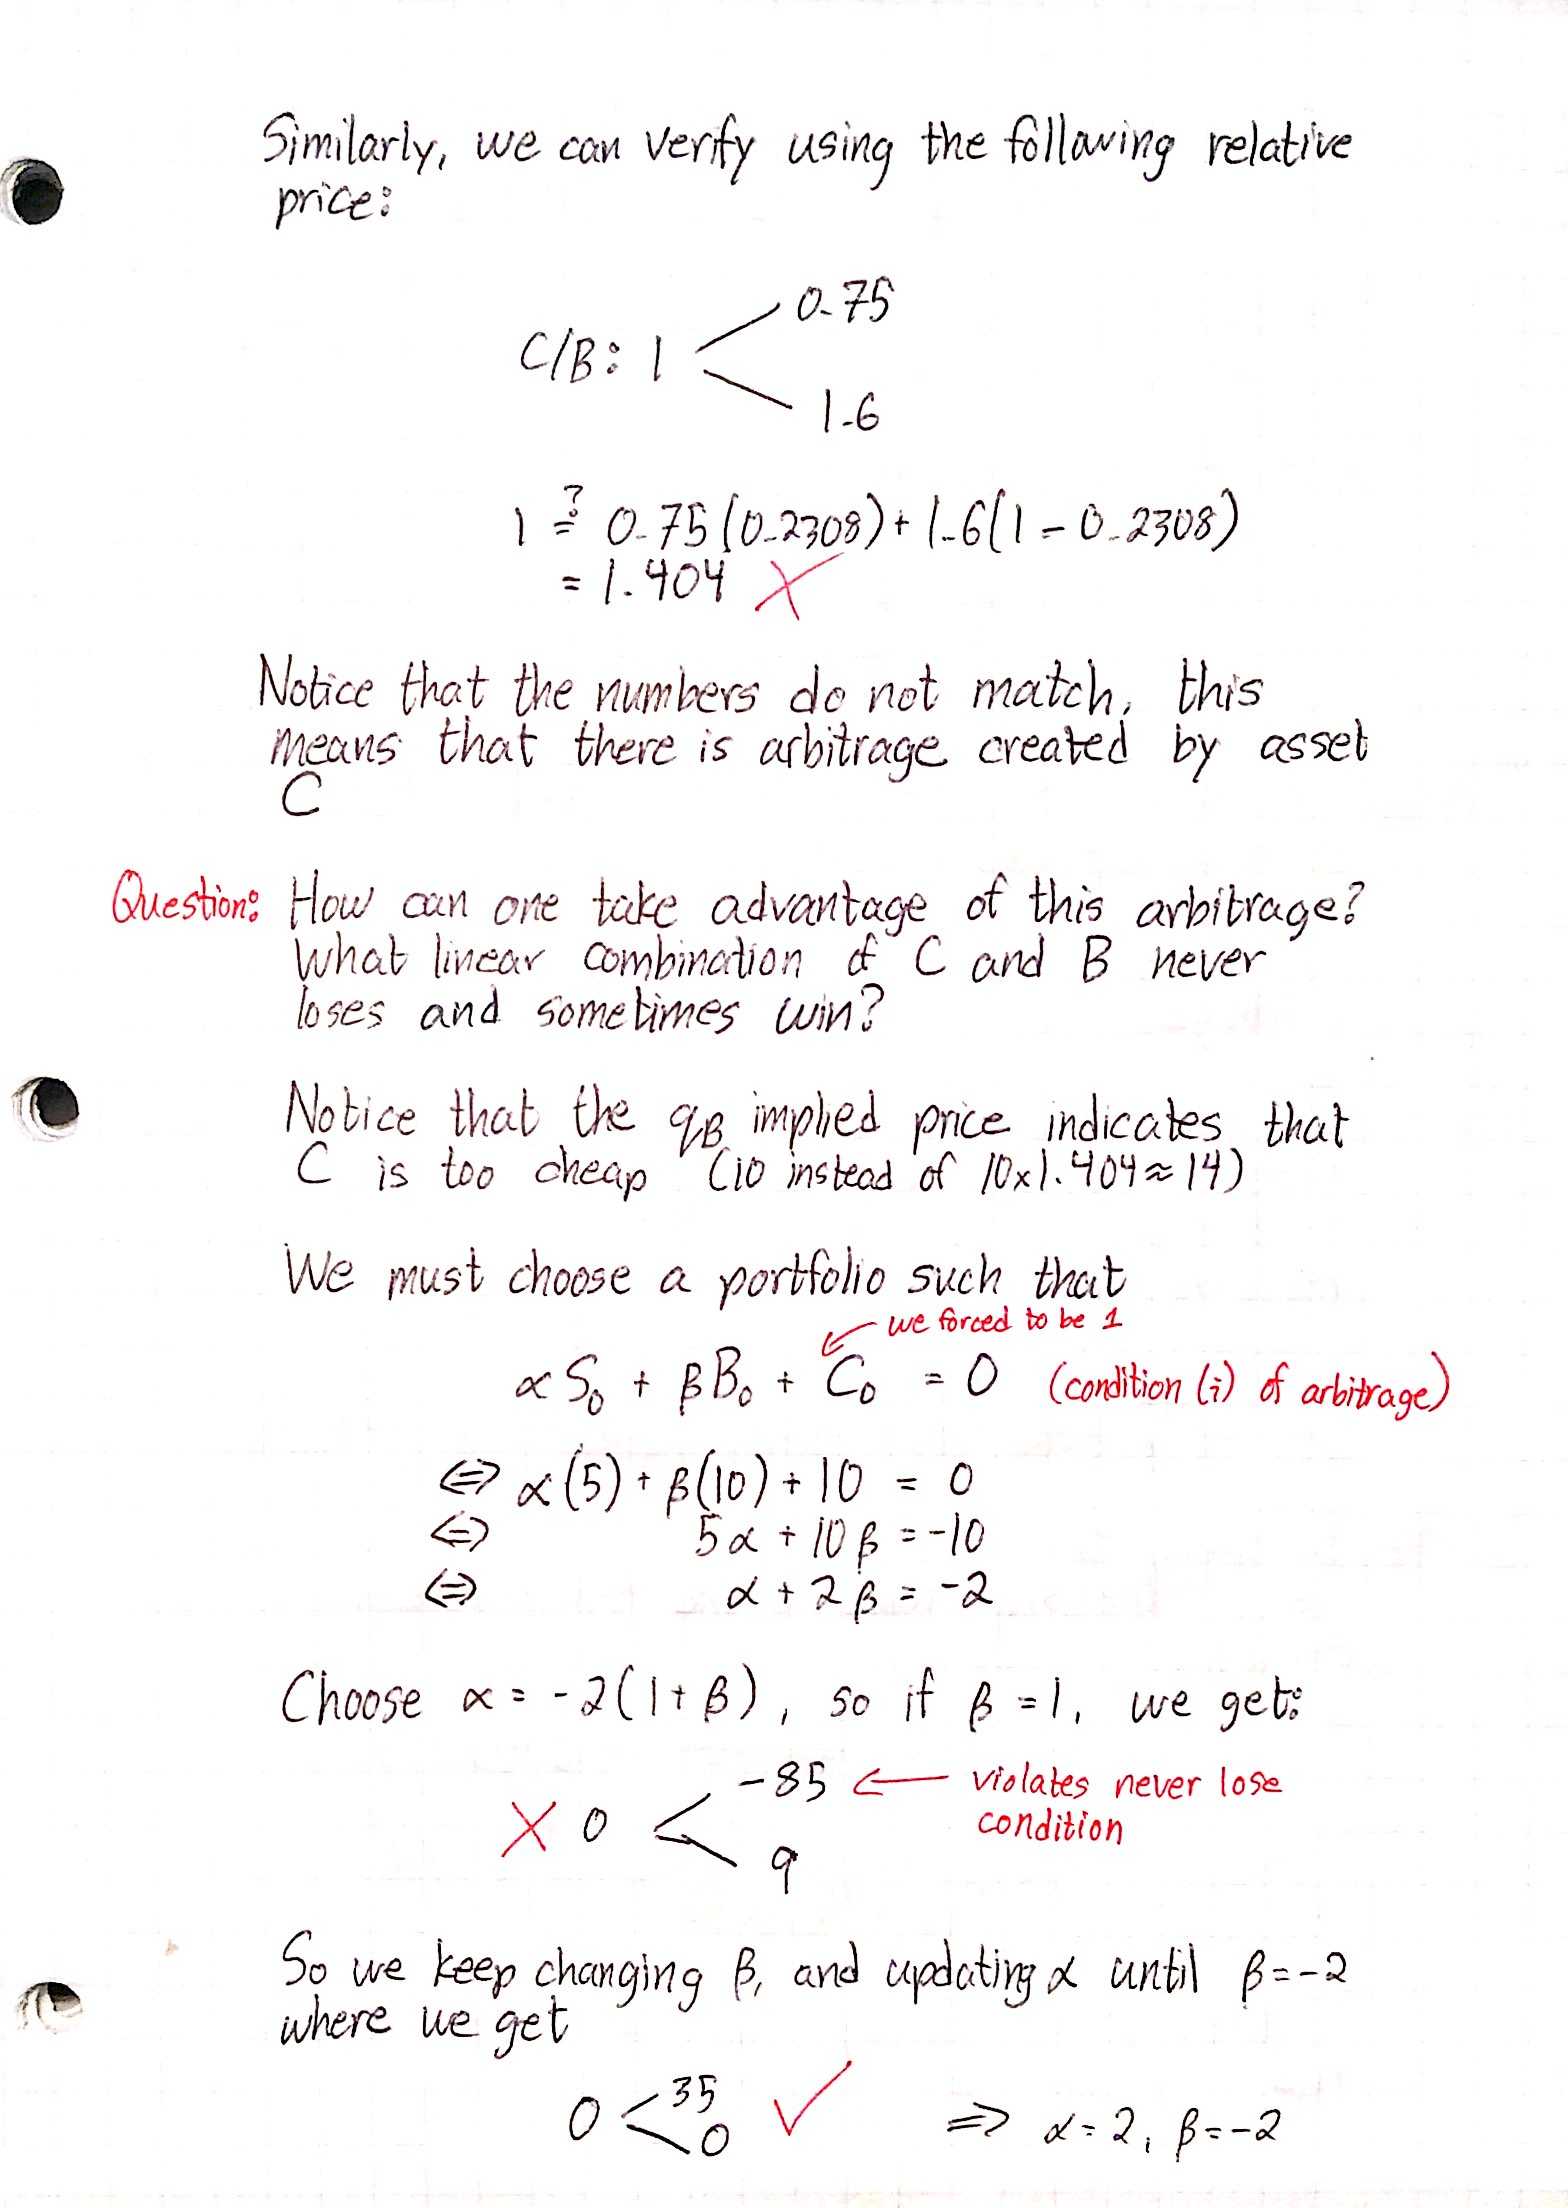 Similarly, we can verify using the following relative
price:
0.75
C/B: 1
1.6
1 ≟ 0.75(0.2308) + 1.6(1 - 0.2308)
= 1.404 X
Notice that the numbers do not match, this
means that there is arbitrage created by asset
C
Question: How can one take advantage of this arbitrage?
What linear combination of C and B never
loses and sometimes win?
Notice that the qB implied price indicates that
C is too cheap (10 instead of 10x1.404≈14)
We must choose a portfolio such that
we forced to be 1
αS₀ + βB₀ + C₀ = 0 (condition (i) of arbitrage)
⇔ α(5) + β(10) + 10 = 0
⇔ 5α + 10β = -10
⇔ α + 2β = -2
Choose α = -2(1+β), so if β = 1, we get:
-85 ← violates never lose
X 0 condition
9
So we keep changing β, and updating α until β=-2
where we get
35
0 ✓ ⇒ α=2, β=-2
0